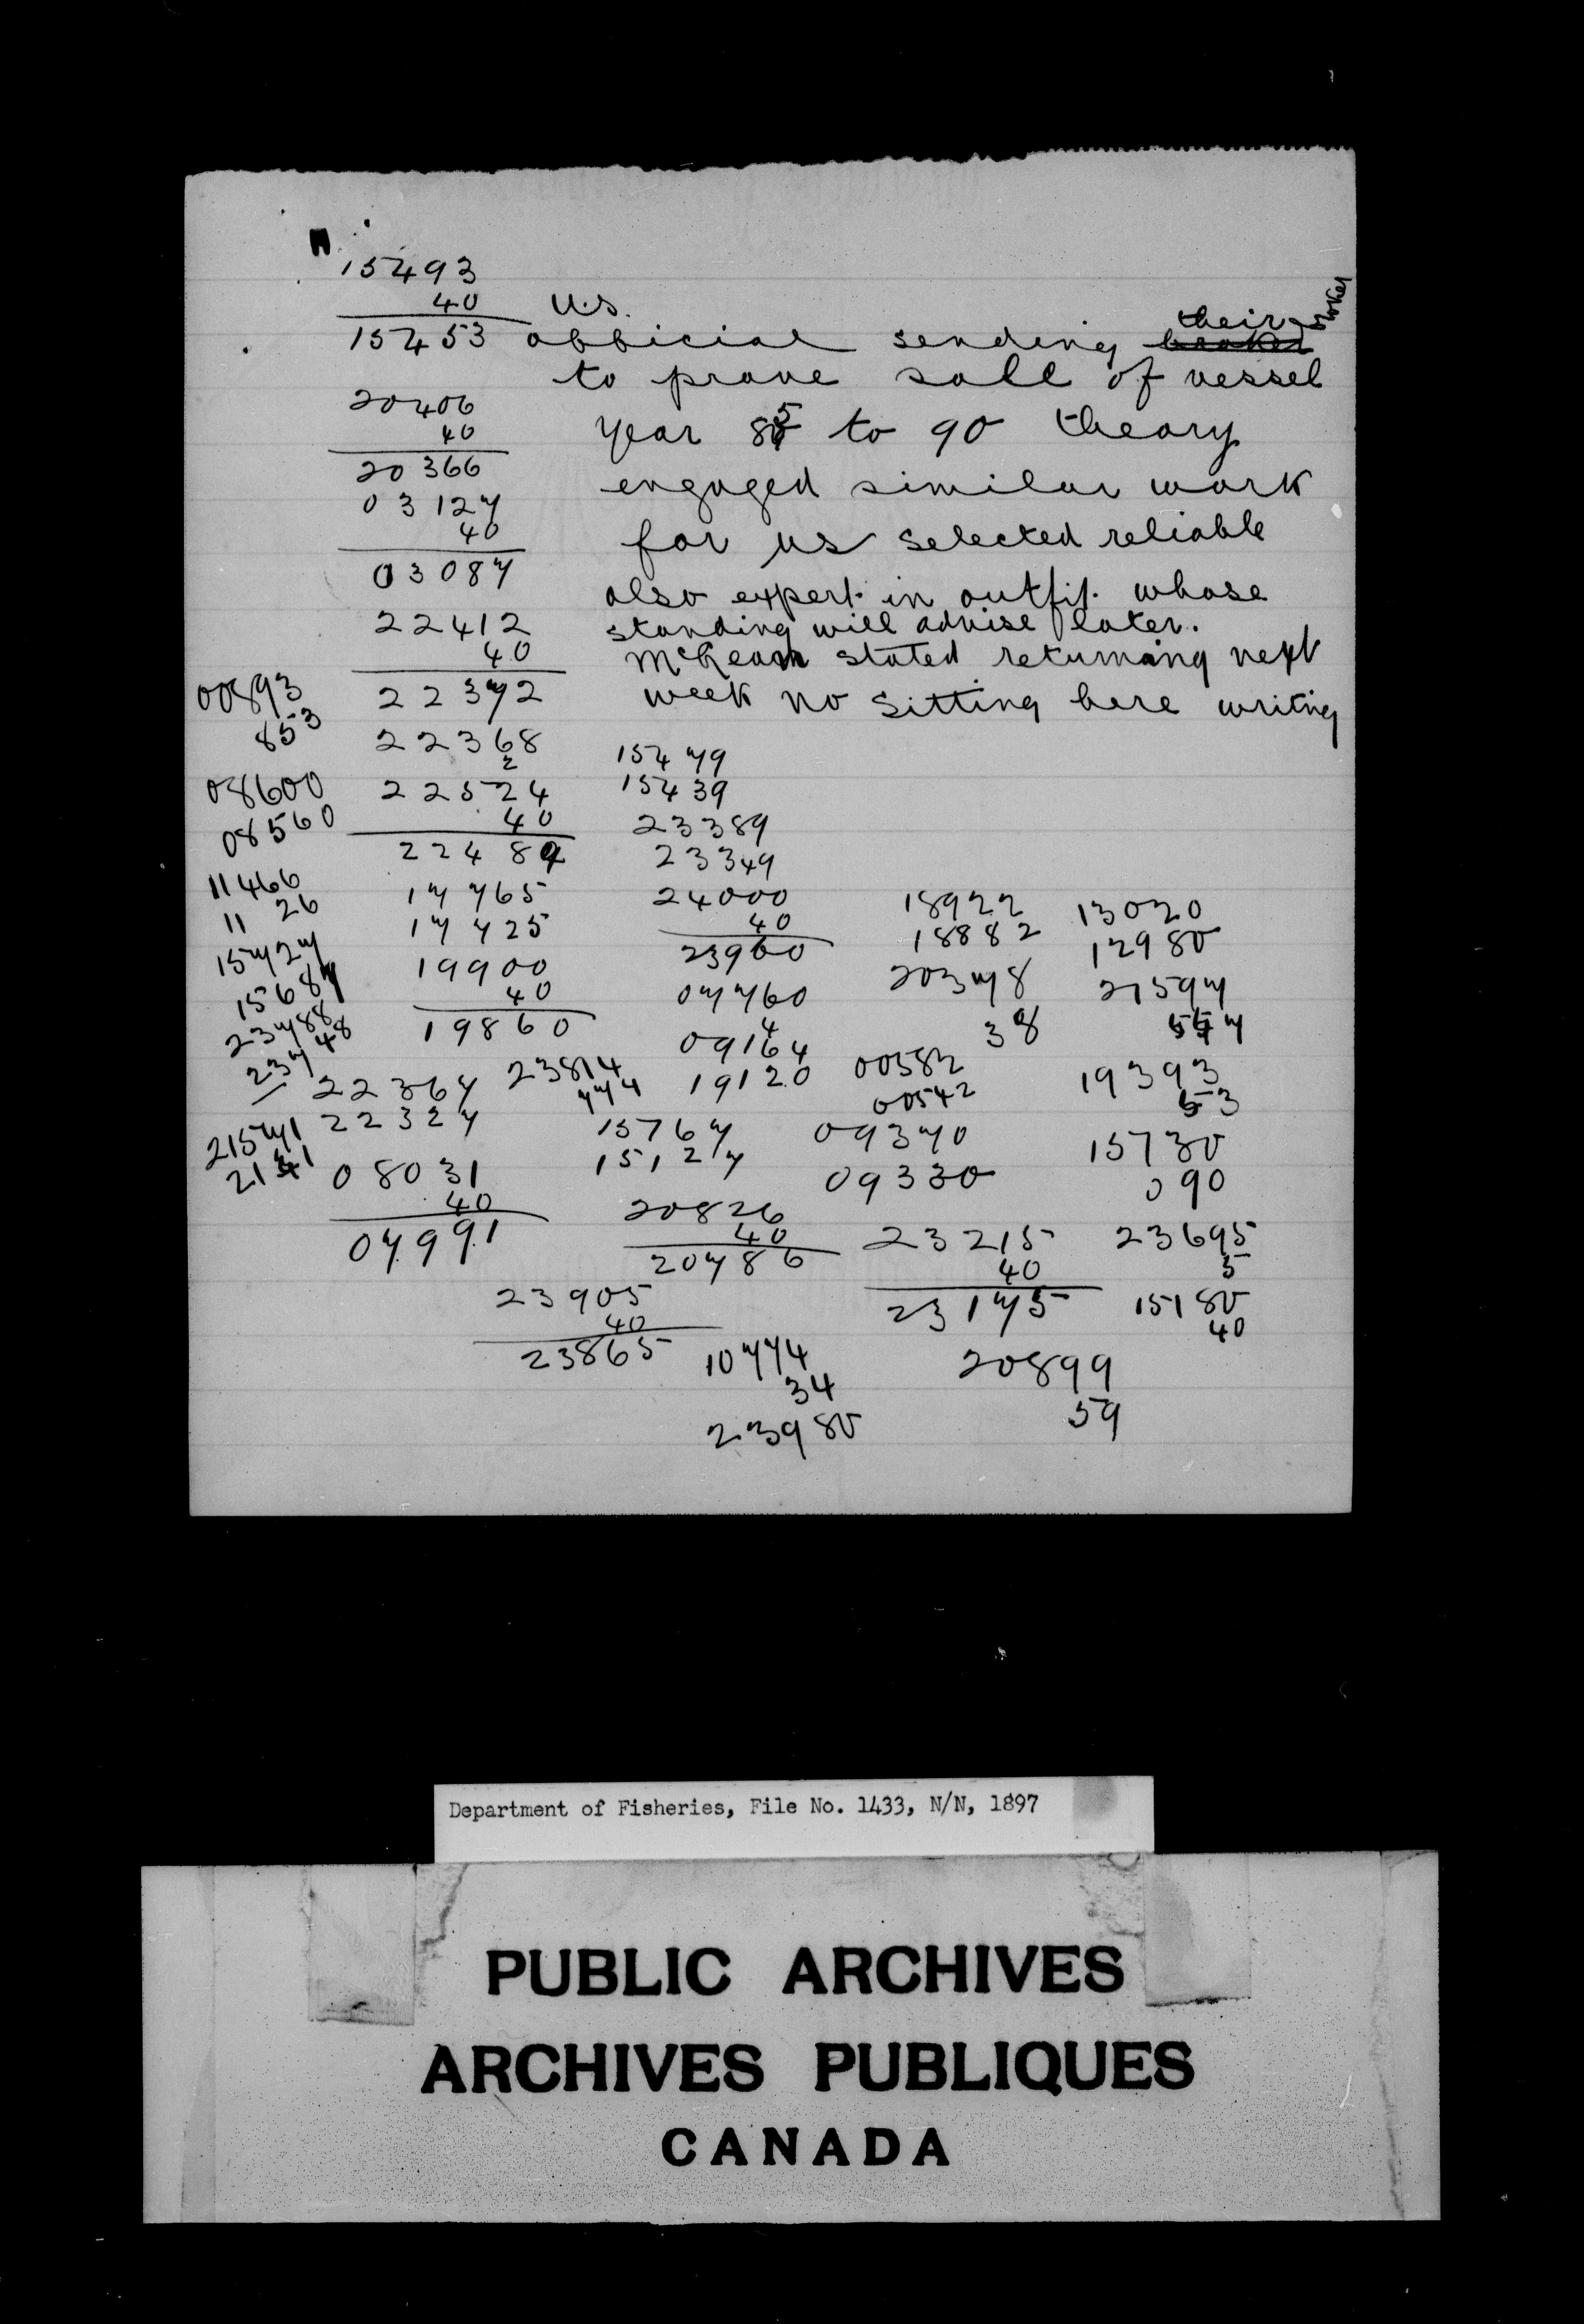 15493
40 U.S.
15453 official sending ~~broker~~ their broker
to prove sale of vessel
20406
40 year 85 to 90 theory
20366
03127 engaged similar work
40 for us selected reliable
03087
also expert in outfit whose
22412 standing will advise later.
40 McLean stated returning next
00893 22372 week no sitting here writing
853
22368
2
15479
08600 22524 15439
08560 40 23389
22484 23349
11466 17765 24000 18922 13020
11 26 17725 40 18882 12980
15727 19900 23960 20378 21597
15687 40 07760 38 557
23788 19860 09164
4
23748
22367 23814 19120 00582 19393
774 00542 53
21571 22327 15767 09370 15130
2131 15127 09330 090
08031 20826
40 40 23215 23695
07991 20786 40 5
23905 23175 15180
40 40
23865 10774 20899
34 59
23980
Department of Fisheries, File No. 1433, N/N, 1897
PUBLIC ARCHIVES
ARCHIVES PUBLIQUES
CANADA